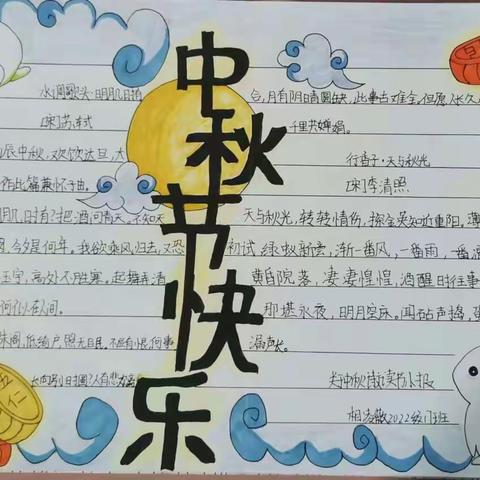 中秋节快乐
水调歌头·明月几时有
[宋]苏轼
辰中秋，欢饮达旦，大
作此篇兼怀子由。
明月几时有?把酒问青天。不知天
阙，今夕是何年。我欲乘风归去，又恐
玉宇，高处不胜寒。起舞弄清
何似在人间。
朱阁，低绮户，照无眠。不应有恨，何事
长向别时圆?人有悲欢
合，月有阴晴圆缺，此事古难全。但愿人长久
千里共婵娟。
行香子·天与秋光
[宋]李清照
天与秋光，转转情伤，探金英知近重阳。薄
初试，绿蚁新尝，渐一番风，一番雨，一番
黄昏院落，凄凄惶惶，酒醒时往事
那堪永夜，明月空床。闻砧声捣，蛩
漏声长。
2022级1班
五仁